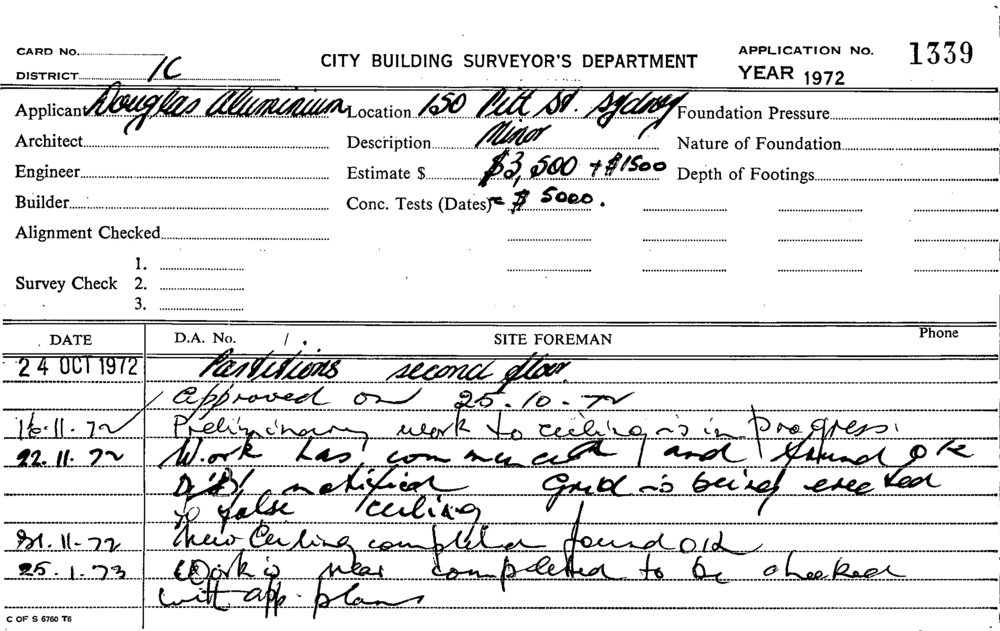 CARD No. APPLICATION No. 1339
DISTRICT 1C CITY BUILDING SURVEYOR'S DEPARTMENT YEAR 1972
Applicant Douglas Aluminium Location 150 Pitt St. Sydney Foundation Pressure
Architect Description Minor Nature of Foundation
Engineer Estimate $ $3,500 + $1500 Depth of Footings
Builder Conc. Tests (Dates) = $ 5000.
Alignment Checked
1.
Survey Check 2.
3.
DATE D.A. No. SITE FOREMAN Phone
24 OCT 1972 Partitions second floor.
Approved on 25.10.72
16.11.72 Preliminary work to ceiling is in progress.
22.11.72 Work has commenced and found ok
notified Grid is being erected
to false ceiling
New Ceiling completed found ok
25.1.73 Work is near completed to be checked
with app. plans
C OF S 6760 T6